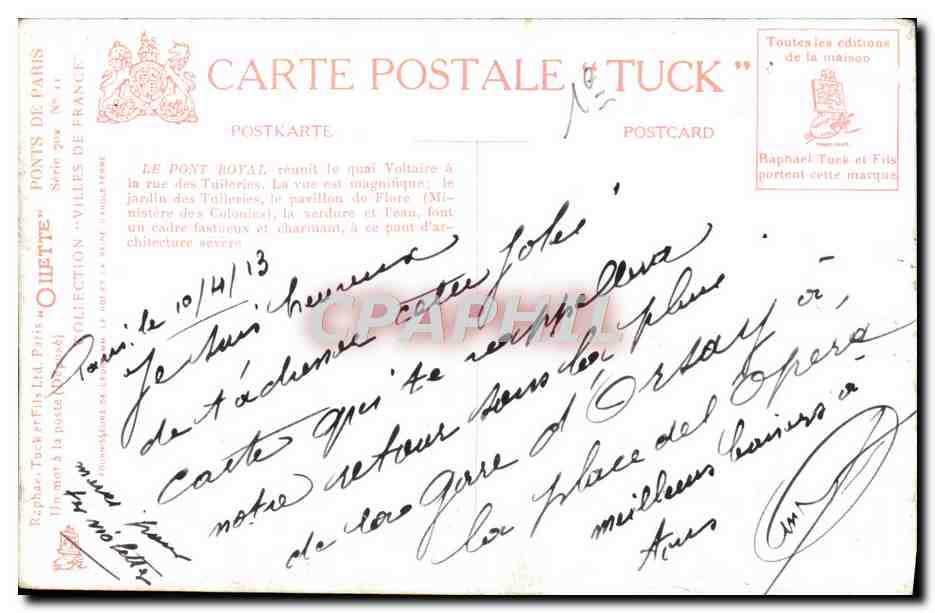 CARTE POSTALE "TUCK"
POSTKARTE
POSTCARD
Toutes les éditions
de la maison
Raphael Tuck et Fils
portent cette marque
LE PONT ROYAL réunit le quai Voltaire à
la rue des Tuileries. La vue est magnifique; le
jardin des Tuileries, le pavillon de Flore (Mi-
nistère des Colonies), la verdure et l'eau, font
un cadre fastueux et charmant, à ce pont d'ar-
chitecture sevère
Raphael Tuck et Fils Ltd. Paris "OILETTE" PONTS DE PARIS
Un mot à la poste (Déposé) Série 902 No 41
COLLECTION "VILLES DE FRANCE"
FOURNISSEURS DE LEURS MM. LE ROI ET LA REINE D'ANGLETERRE
Paris le 10/4/13
Je suis heureux
de t'adresser cette jolie
carte qui te rappellera
notre retour sous la pluie
de la gare d'Orsay à
la place de l'Opéra
meilleurs baisers à
tous
merci pour
tes violettes
CPAPHIL